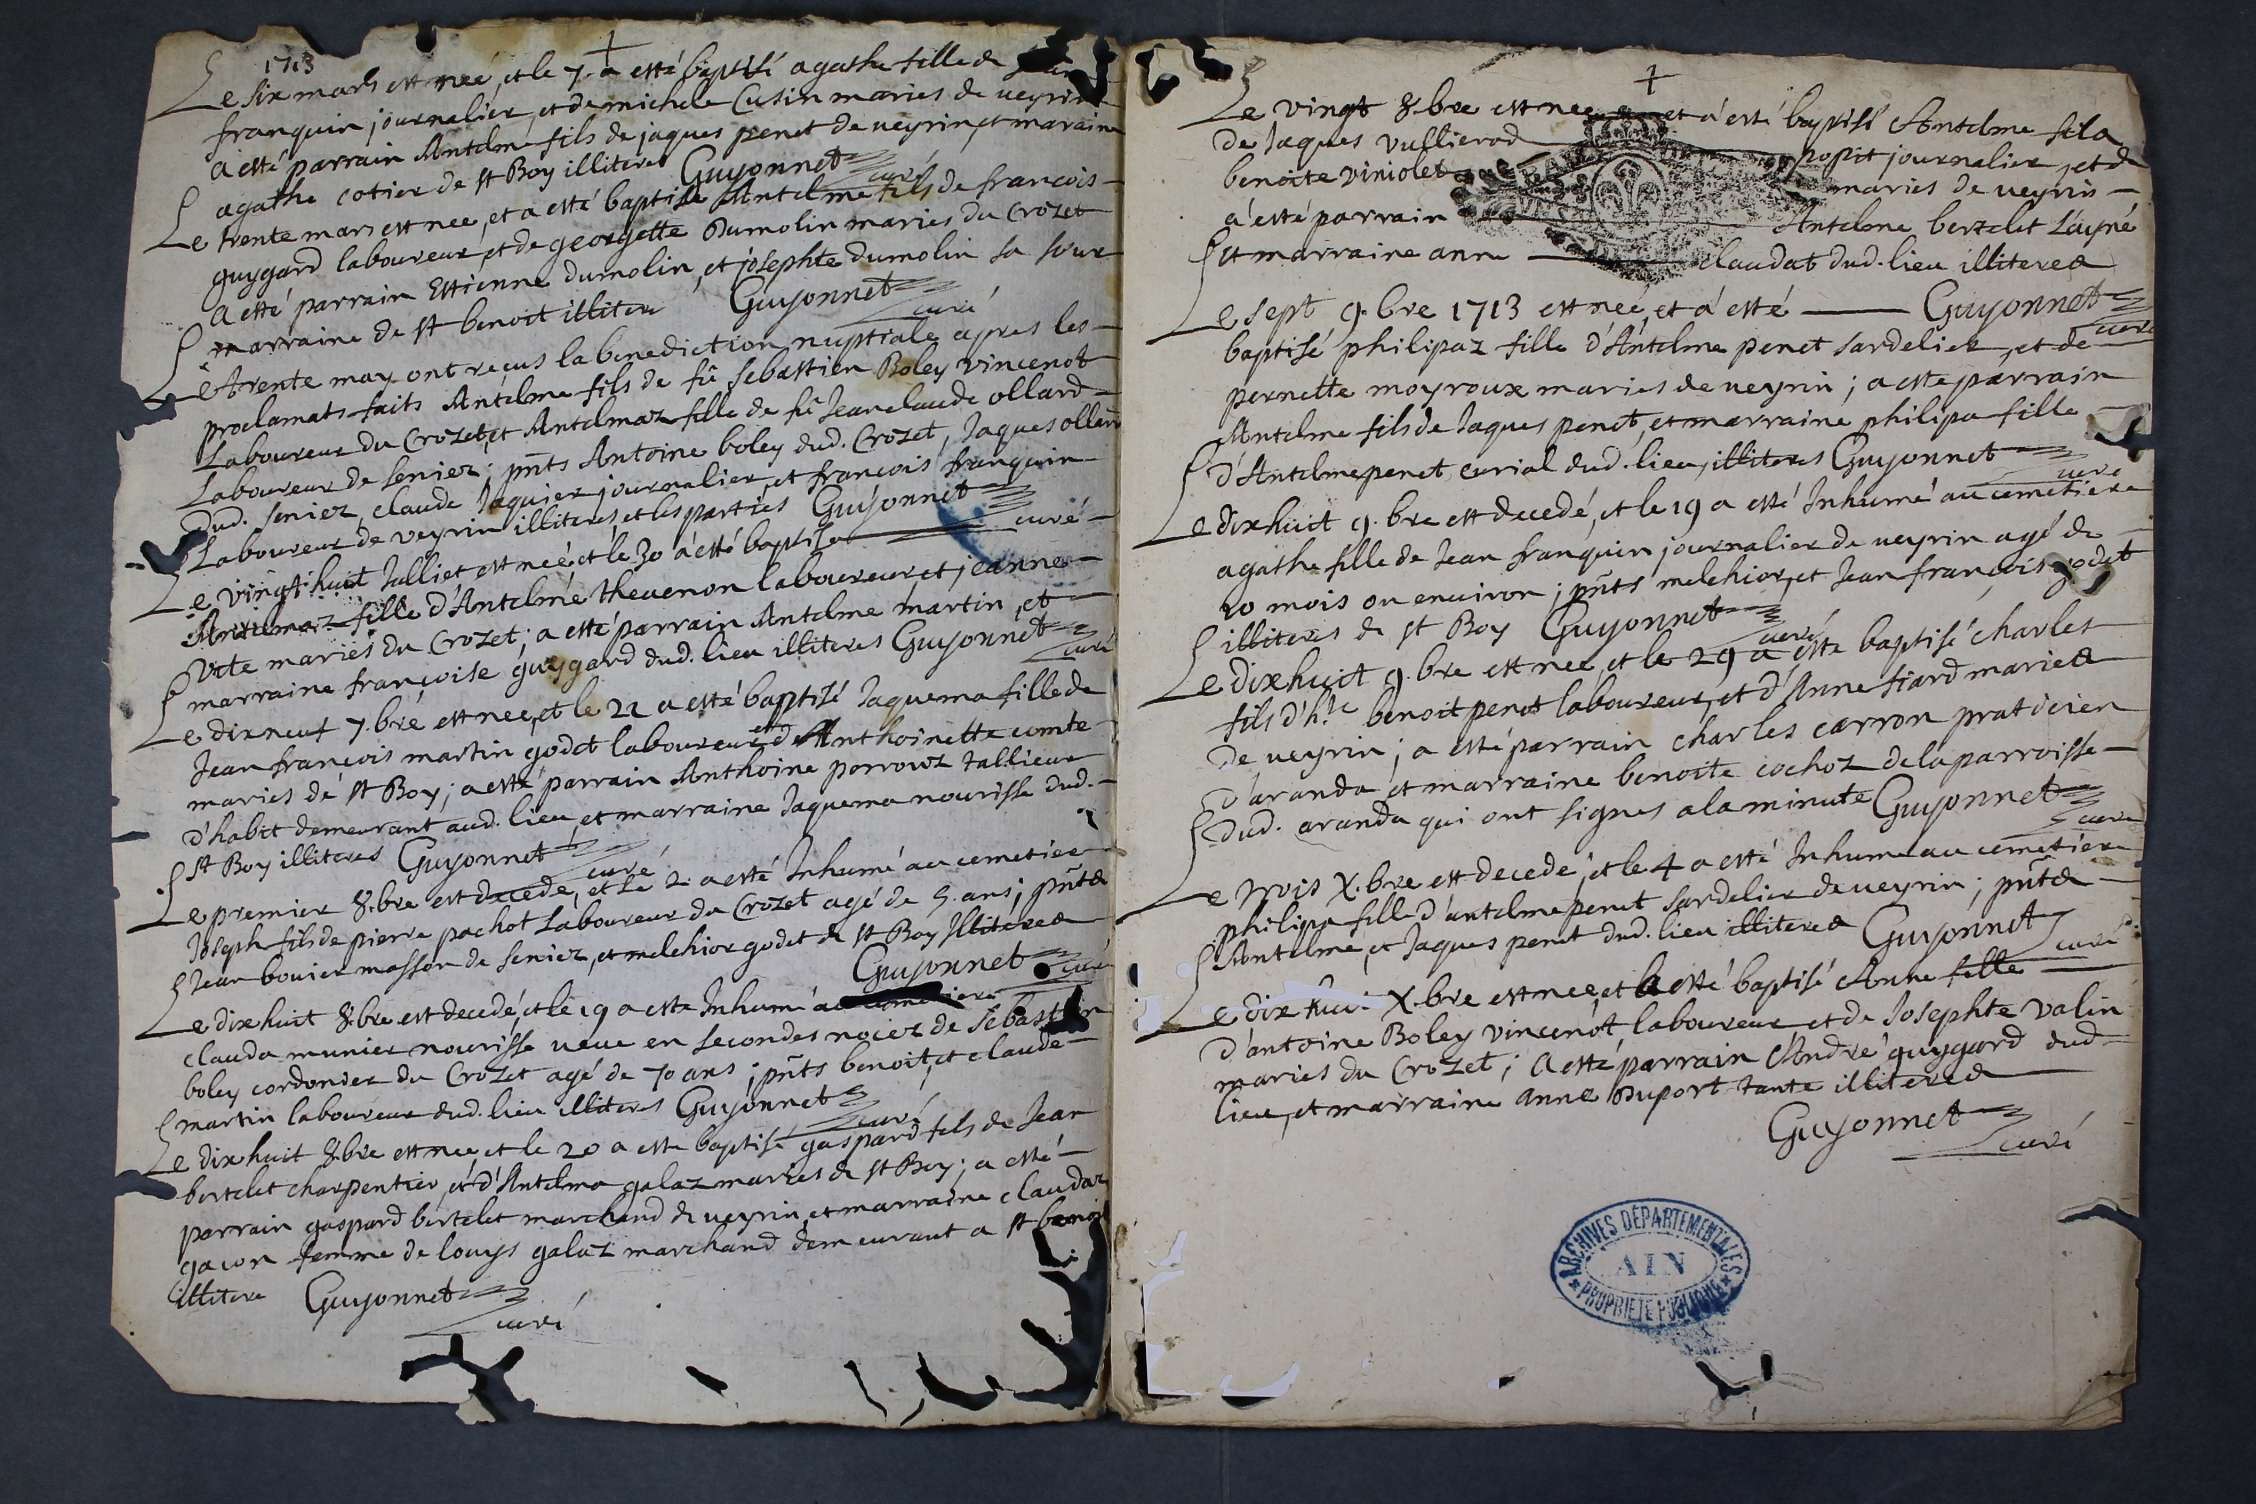 1713
Le six mars est neé, et le 7 a esté baptisé agathe fille de
franquin journalier, et de michele Cusin maries de veyrin
a esté parrain Antelme fils de jaques penet de veyrin, et maraine
agathe cotier de st Boy illiteres Guyonnet curé
Le trente mars est nee, et a esté baptise Antelme fils de francois
guygard laboureur, et de georgette Dumolin maries du Crozet
a esté parrain Estienne dumolin, et josephte dumolin sa sœur
marraine de st benoit illitere Guyonnet curé
Le trente may ont reçus la benediction nuptiale apres les
proclamats faits Antelme fils de fû sebastien Boley vincenot
Laboureur du Crozet, et Antelmaz fille de fû Jean claude ollard
Laboureur de seniez; pnts Antoine boley dud. Crozet, Jaques ollard
dud. seniez, claude Jaquier journalier, et francois franquin
Laboureur de veyrin illiteres, et les parties Guyonnet curé
Le vingt huit Julliet est neé, et le 30 a esté baptise
Antelmaz fille d'Antelme thevenon laboureur, et jeanne
Vite mariés du Crozet; a esté parrain Antelme martin, et
marraine françoise guygard dud. lieu illiteres Guyonnet curé
Le dix neuf 7.bre est nee, et le 22 a esté baptisé Jaquema fille de
Jean francois martin godet laboureur et d'Anthoinette comte
maries de st Boy; a esté parrain Anthoine perrouz tallieur
d'habit demeurant aud. lieu, et marraine Jaquema nourisse dud.
st Boy illiteres Guyonnet curé
Le premier 8.bre est decede, et Le 2 a esté Inhumé au cemetiere
Joseph fils de pierre pachot Laboureur du Crozet agé de 5. ans; pnts
Jean bouier masson de seniez, et melchior godet de st Boy Illiteres
Guyonnet curé
Le dix huit 8.bre est decedé, et le 19 a este Inhumé au cemetiere
clauda munier nourisse veuve en secondes nocez de sebastien
boley cordonier du Crozet agé de 70 ans; pnts benoit, et claude
martin laboureur dud. lieu illiteres Guyonnet curé
Le dix huit 8.bre est nee, et le 20 a este baptisé gaspard fils de Jean
bertelet charpentier, et d'Antelma galaz maries de st Boy; a esté
parrain gaspard bertelet marchand de veyrin, et marraine claudaz
gacon femme de louys galaz marchand demeurant a st benoit
illitere Guyonnet curé
Le vingt 8.bre est nee et a esté baptisé Antelme fils
de Jaques vullierod popit journalier, et de
benoite viniolet maries de veyrin
a esté parrain Antelme bertelet L'ayné
et marraine anne claudat dud. lieu illiteres
Guyonnet curé
Le sept 9.bre 1713 est neé, et a esté
baptisé philipaz fille d'Antelme penet sardelier, et de
pernette moyroux maries de veyrin; a este parrain
Antelme fils de Jaques penet, et marraine philipa fille
d'Antelme penet curial dud. lieu, illiteres Guyonnet curé
Le dix huit 9.bre est decedé, et le 19 a esté Inhumé au cemetiere
agathe fille de Jean franquin journalier de veyrin agé de
10 mois ou environ; pnts melchior, et Jean françois godet
illiteres de st Boy Guyonnet curé
Le dix huit 9.bre est nee, et le 29 a este baptisé charles
fils d'h.le benoit penet laboureur, et d'Anne siard maries
de veyrin; a esté parrain charles carron praticien
d'aranda et marraine benoite cochoz de la parroisse
dud. aranda qui ont signes a la minute Guyonnet curé
Le trois X.bre est decede, et le 4 a esté Inhume au cemetiere
philippa fille d'antelme penet sardelier de veyrin; pnts
Antelme, et Jaques penet dud. lieu illiteres Guyonnet curé
Le dix huit X.bre est nee, et a esté baptisé Anne fille
d'antoine Boley vincenot, laboureur et de Josephte valin
maries du Crozet; a esté parrain André guygard dud.
lieu, et marraine anne Duport tante illiteres
Guyonnet curé
ARCHIVES DÉPARTEMENTALES
AIN
PROPRIÉTÉ PUBLIQUE